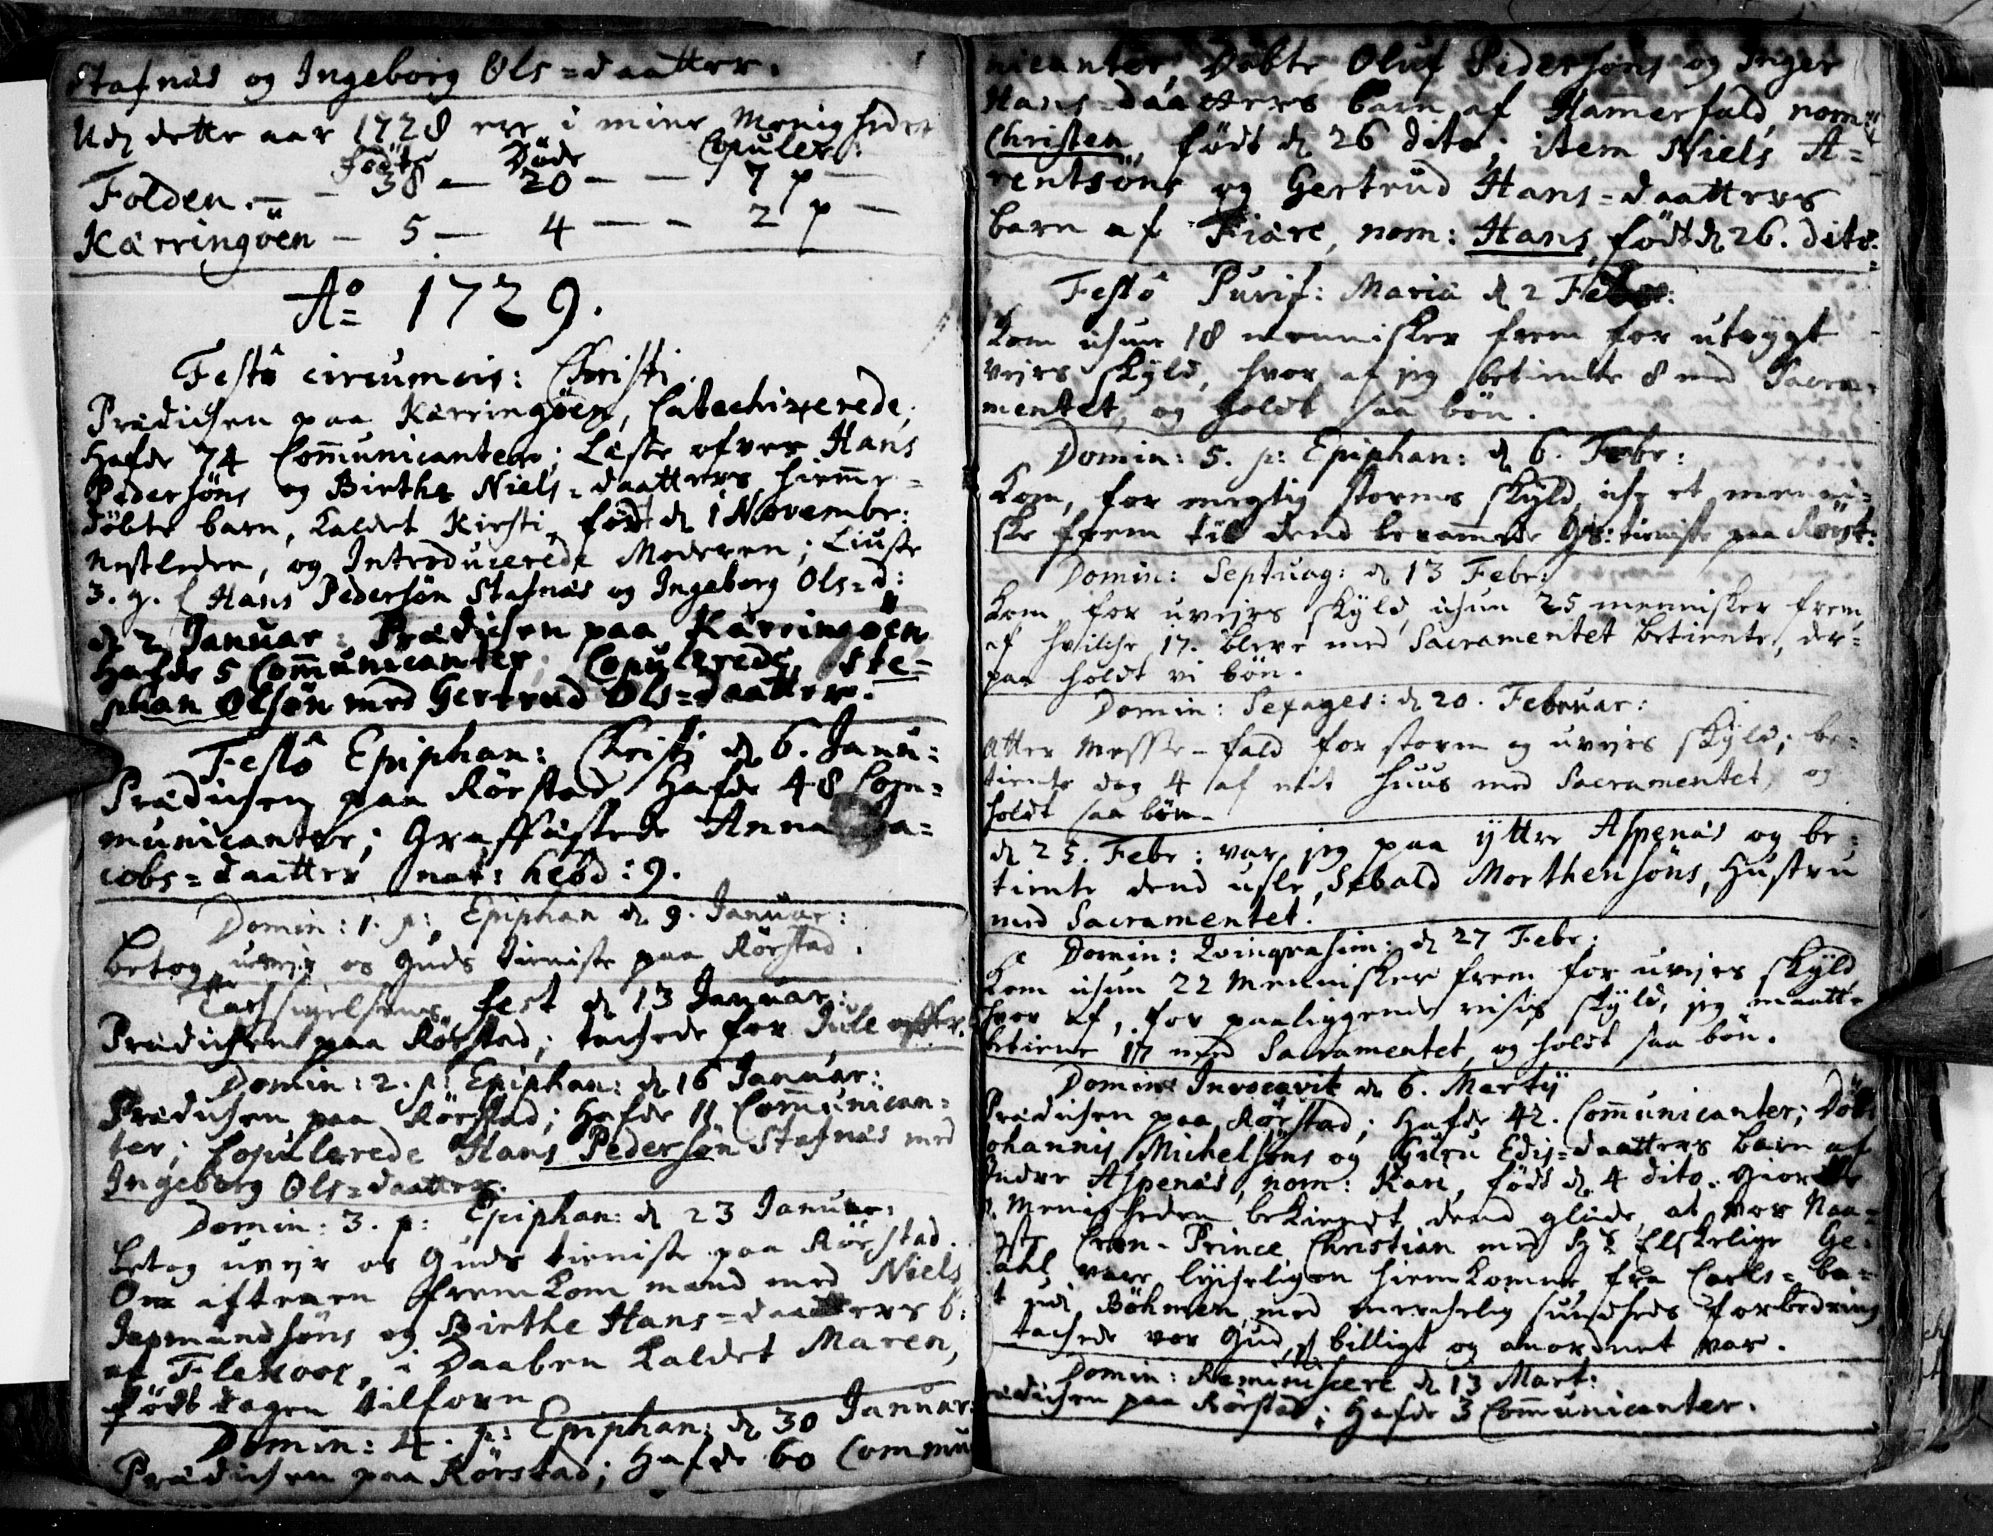 Stafnäs og Ingeborg Ols=daatter.
Udj dette aar 1728 ere i mine Menigheder
födte Döde Copuler:
Folden. — 38 — 20 — — 7 p —
Kærringöen — 5 — 4 — — 2 p —
Aº 1729.
Festô circumcis: Christi
Prædichen paa Kærringöen, Catechizerede,
Hafde 74 Com̄unicanter; Læste ofver Hans
Pedersöns og Birthe Niels=daatters hiem̄e=
döbte barn, kaldet Kirsti, född d. 1 Novembr:
nestleden, og Introducerede Moderen; Liuste
3. g. f Hans Pedersön Stafnäs og Ingeborg Ols=d:
d. 2 Januar: Prædichen paa Kærringöen,
Hafde 5 Com̄unicanter, Copulerede Ste=
phan Olsön med Gertrud Ols=daatter.
Festô Epiphan: Christi d. 6. Janu:
Prædichen paa Rörstad Hafde 48 Com=
municanter; Graffästede Anna Ja=
cobs=daatter nat: hebd: 9.
Domin: 1. p: Epiphan d. 9. Januar:
betog uvejr os Guds tieniste paa Rörstad.
Tachsigelsens fest d. 13 Januar:
Prædichen paa Rörstad; tachede for Jule offer.
Domin: 2. p: Epiphan: d. 16 Januar:
Prædichen paa Rörstad; Hafde 11 Com̄unican=
ter; Copulerede Hans Pedersön Stafnäs med
Ingeborg Ols=daatter.
Domin: 3. p: Epiphan: d. 23 Januar:
betog uvejr os Guds tieniste paa Rörstad.
Om aftenen fremkom mand med Niels
Jepmundsöns og Birthe Hans=daatters b:
af Flekoos, i Daaben kaldet Maren,
född dagen tilforn
Domin: 4. p: Epiphan: d. 30 Januar:
Prædichen paa Rörstad; Hafde 60 Commu
nicanter, Döbte Oluf Pedersöns og Inger
Hans=daatters barn af Hamerfald, nom:
Christen, född d. 26 dito; item Niels A=
rentsöns og Gertrud Hans=daatters
barn af Kiäre, nom: Hans, född d. 26. dito.
Festô Purif: Mariä d. 2 Febr:
kom ichun 18 mennisker frem for utrygt
vejrs skyld, hvor af jeg betiente 8 med Sacra=
mentet, og holdt saa bön.
Domin: 5. p: Epiphan: d. 6. Febr:
kom, for megtig storms skyld, iche et menni=
ske frem til dend beram̄ede Gs: tieniste paa Rörst:
Domin: Septuag: d. 13 Febr:
kom, for uvejrs skyld, ichun 25 mennisker frem,
af hvilche 17. bleve med Sacramentet betiente, der=
paa holdt vi bön.
Domin: Sexages: d. 20. Februar:
Atter Messe-fald for storm og uvejrs skyld; be=
tiente dog 4 af mit huus med Sacramentet, og
holdt saa bön.
d. 25. Febr: var jeg paa yttre Aspenäs og be=
tiente dend usle, Sebald Morthensöns, Hustru
med Sacramentet.
Domin: Qvinqvasim: d. 27 Febr:
kom ichun 22 Mennisker frem for uvejrs skyld
hvor af, for paaliggende rejses skyld, jeg maatte
betiene 17 med Sacramentet, og holdt saa bön.
Domin: Invocavit d. 6. Martij
Prædichen paa Rörstad; Hafde 42. Com̄unicanter; Döbt
ohannis Michelsöns og Guru Edis=daatters barn af
Indre Aspenäs, nom: Kari, född d. 4 dito. Giorde
Menigheden bekiendt dend glæde, at vor Naa=
ste Cron-Prince Christian med Hs Elskelige Ge=
ahl vare lycheligen hiemkomne fra Carls=ba=
udi Böhmen med merchelig sundheds forbedring
tachede vor Gud, s billigt og anordnet var.
Domin: Reminiscere d. 13 Mart:
rædichen paa Rörstad; Hafde 3 Com̄unicanter.